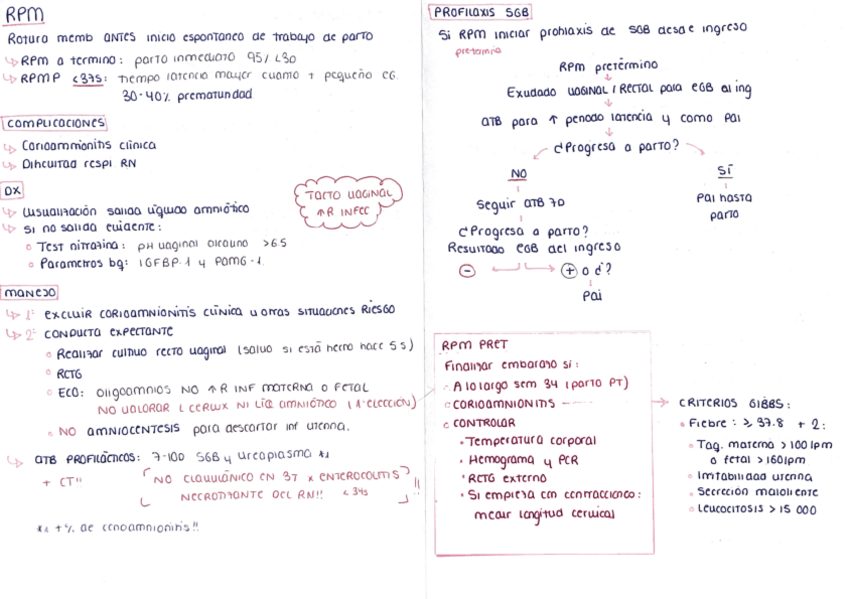 RPM
Rotura memb ANTES inicio espontaneo de trabajo de parto
RPM a termino: parto inmediato 95/ <30
RPMP <37s: tiempo latencia mayor cuanto + pequeño EG.
30-40% prematuridad
COMPLICACIONES
Corioamnionitis clínica
Dificultad respi RN
DX
Visualización salida líquido amniótico
Si no salida evidente:
Test nitrazina: pH vaginal alcalino >6.5
Parametros bq: IGFBP-1 y PAMG-1.
TACTO VAGINAL
↑R INFEC
MANEJO
1º EXCLUIR CORIOAMNIONITIS CLÍNICA u otras situaciones RIESGO
2º CONDUCTA EXPECTANTE
Realizar cultivo recto vaginal (salvo si está hecho hace 5 s)
RCTG
ECO: oligoamnios NO ↑R INF MATERNA O FETAL
NO VALORAR L CERVIX NI LÍQ AMNIÓTICO (1ª ELECCIÓN)
NO AMNIOCENTESIS para descartar inf uterina.
ATB PROFILÁCTICOS: 7-10D SGB y Ureaplasma *1
+ CT"
NO CLAVULÁNICO EN 3T x ENTEROCOLITIS
NECROTIZANTE DEL RN!! <34s
!!
*1 +% de corioamnionitis!!
PROFILAXIS SGB
Si RPM iniciar profilaxis de SGB desde ingreso
pretermino
RPM pretérmino
Exudado VAGINAL / RECTAL para EGB al ing
ATB para ↑ periodo latencia y como PAI
¿Progresa a parto?
NO
SÍ
Seguir ATB 7D
PAI hasta
parto
¿Progresa a parto?
Resultado EGB del ingreso
- + o ¿?
PAI
RPM PRET
Finalizar embarazo si:
A lo largo sem 34 (parto PT)
CORIOAMNIONITIS
CONTROLAR
Temperatura corporal
Hemograma y PCR
RCTG externo
Si empieza con contracciones:
medir longitud cervical
CRITERIOS GIBBS:
Fiebre: ≥ 37.8 + 2:
Taq. materna > 100 lpm
o fetal > 160 lpm
Irritabilidad uterina
Secreción maloliente
Leucocitosis > 15 000